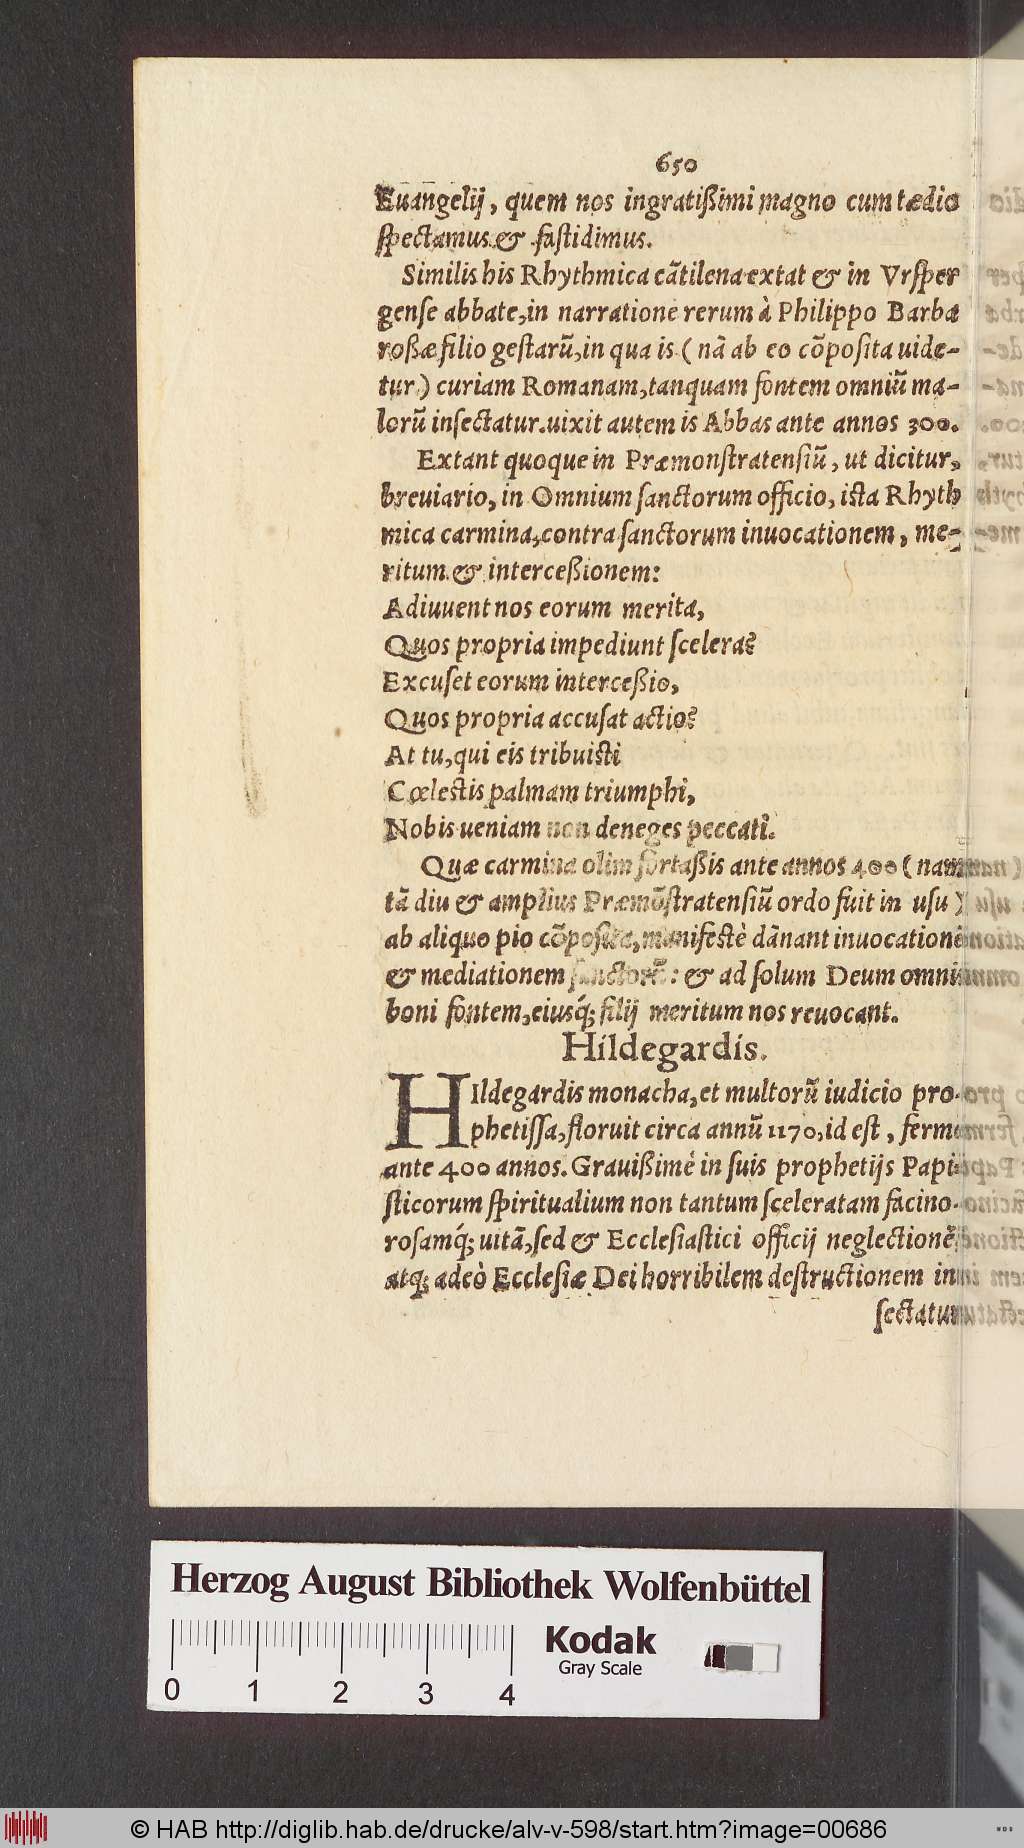 650
Euangelij, quem nos ingratißimi magno cum tædio
spectamus & fastidimus.
Similis his Rhythmica cãtilena extat & in Vrsper
gense abbate, in narratione rerum à Philippo Barba
roßæ filio gestarũ, in qua is (nã ab eo cõposita uide-
tur) curiam Romanam, tanquam fontem omniũ ma-
lorũ insectatur. uixit autem is Abbas ante annos 300.
Extant quoque in Præmonstratensiũ, ut dicitur,
breuiario, in Omnium sanctorum officio, ista Rhyth
mica carmina, contra sanctorum inuocationem, me-
ritum & interceßionem:
Adiuuent nos eorum merita,
Quos propria impediunt scelera?
Excuset eorum interceßio,
Quos propria accusat actio?
At tu, qui eis tribuisti
Cœlestis palmam triumphi,
Nobis ueniam non deneges peccati.
Quæ carmina olim fortaßis ante annos 400 (nam
tã diu & amplius Præmõstratensiũ ordo fuit in usu)
ab aliquo pio cõposita, manifestè dãnant inuocationẽ
& mediationem sanctorũ: & ad solum Deum omniũ
boni fontem, eiusq́; filij meritum nos reuocant.
Hildegardis.
HIldegardis monacha, et multorũ iudicio pro-
phetissa, floruit circa annũ 1170, id est, ferme
ante 400 annos. Grauißimè in suis prophetijs Papi-
sticorum spiritualium non tantum sceleratam facino-
rosamq́; uitã, sed & Ecclesiastici officij neglectionẽ
atq; adeò Ecclesiæ Dei horribilem destructionem in
sectatur
Herzog August Bibliothek Wolfenbüttel
Kodak
Gray Scale
0 1 2 3 4
© HAB http://diglib.hab.de/drucke/alv-v-598/start.htm?image=00686